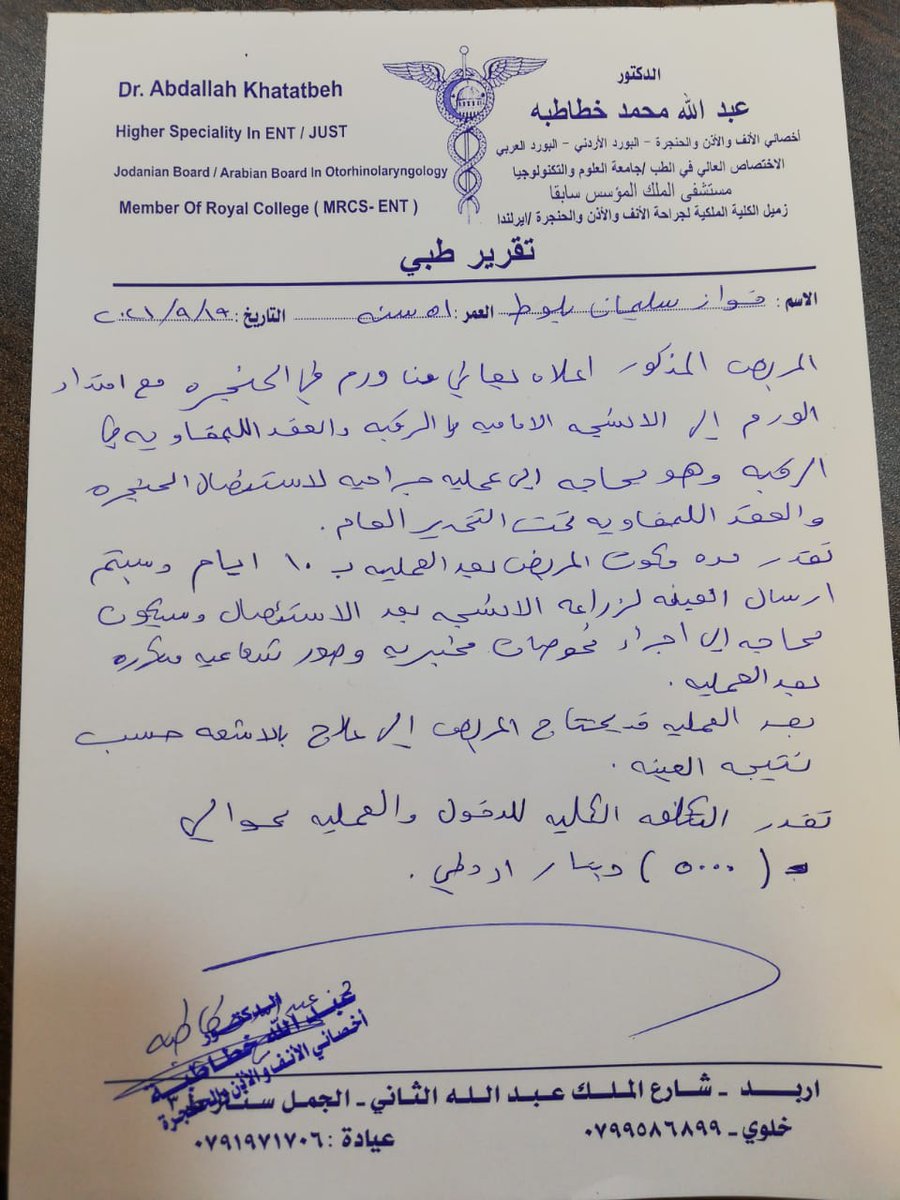 Dr. Abdallah Khatatbeh
Higher Speciality In ENT / JUST
Jodanian Board / Arabian Board In Otorhinolaryngology
Member Of Royal College ( MRCS- ENT )
الدكتور
عبد الله محمد خطاطبه
أخصائي الأنف والأذن والحنجرة - البورد الأردني - البورد العربي
الاختصاص العالي في الطب /جامعة العلوم والتكنولوجيا
مستشفى الملك المؤسس سابقا
زميل الكلية الملكية لجراحة الأنف والأذن والحنجرة /ايرلندا
تقرير طبي
الاسم: فواز سليمان بلوط العمر: ٥١ سنه التاريخ: ٢٠٢١/٩/١٩
المريض المذكور اعلاه يعاني من ورم في الحنجره مع امتداد
الورم الى الانسجه الاماميه في الرقبه والعقد اللمفاويه في
الرقبه وهو بحاجه الى عمليه جراحيه لاستئصال الحنجره
والعقد اللمفاويه تحت التخدير العام.
تقدر مده مكوث المريض بعد العمليه ب ١٠ ايام وسيتم
ارسال العينه لزراعه الانسجه بعد الاستئصال وسيكون
بحاجه الى اجراء فحوصات مخبريه وصور شعاعيه متكرره
بعد العمليه.
بعد العمليه قد يحتاج المريض الى علاج بالاشعه حسب
نتيجه العينه.
تقدر التكلفه الكليه للدخول والعمليه بحوالي
( ٥٠٠٠ ) دينار اردني.
الدكتور
عبد الله خطاطبة
أخصائي الأنف والأذن والحنجرة
اربد - شارع الملك عبد الله الثاني - الجمل سنتر
خلوي - ٠٧٩٩٥٨٦٨٩٩ عيادة : ٠٧٩١٩٧١٧٠٦